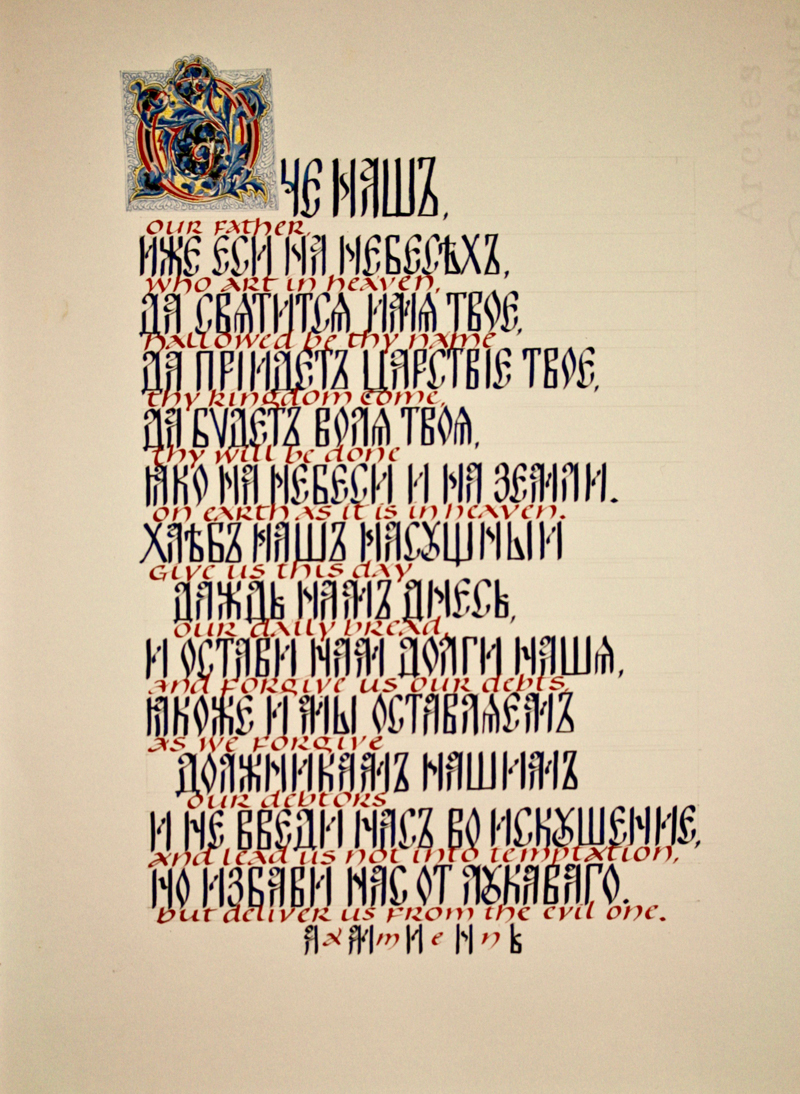 ОЧЕ НАШЪ,
our father,
ИЖЕ ЕСИ НА НЕБЕСѢХЪ,
who art in heaven,
ДА СВѦТИТСѦ ИМѦ ТВОЕ,
hallowed be thy name
ДА ПРІИДЕТЪ ЦАРСТВІЕ ТВОЕ,
thy kingdom come,
ДА БУДЕТЪ ВОЛѦ ТВОѦ,
thy will be done
ꙖКО НА НЕБЕСИ И НА ЗЕМЛИ.
on earth as it is in heaven.
ХЛѢБЪ НАШЪ НАСꙊЩНЫИ
Give us this day
ДАЖДЬ НАМЪ ДНЕСЬ,
our daily bread,
И ОСТАВИ НАМ ДОЛГИ НАШѦ,
and forgive us our debts,
ꙖКОЖЕ И МЫ ОСТАВЛѦЕМЪ
as we forgive
ДОЛЖНИКАМЪ НАШИМЪ
our debtors
И НЕ ВВЕДИ НАСЪ ВО ИСКꙊШЕНИЕ,
and lead us not into temptation,
НО ИЗБАВИ НАС ОТ ЛꙊКАВАГО.
but deliver us from the evil one.
АaМmИeНnЬ
Arches
FRANCE